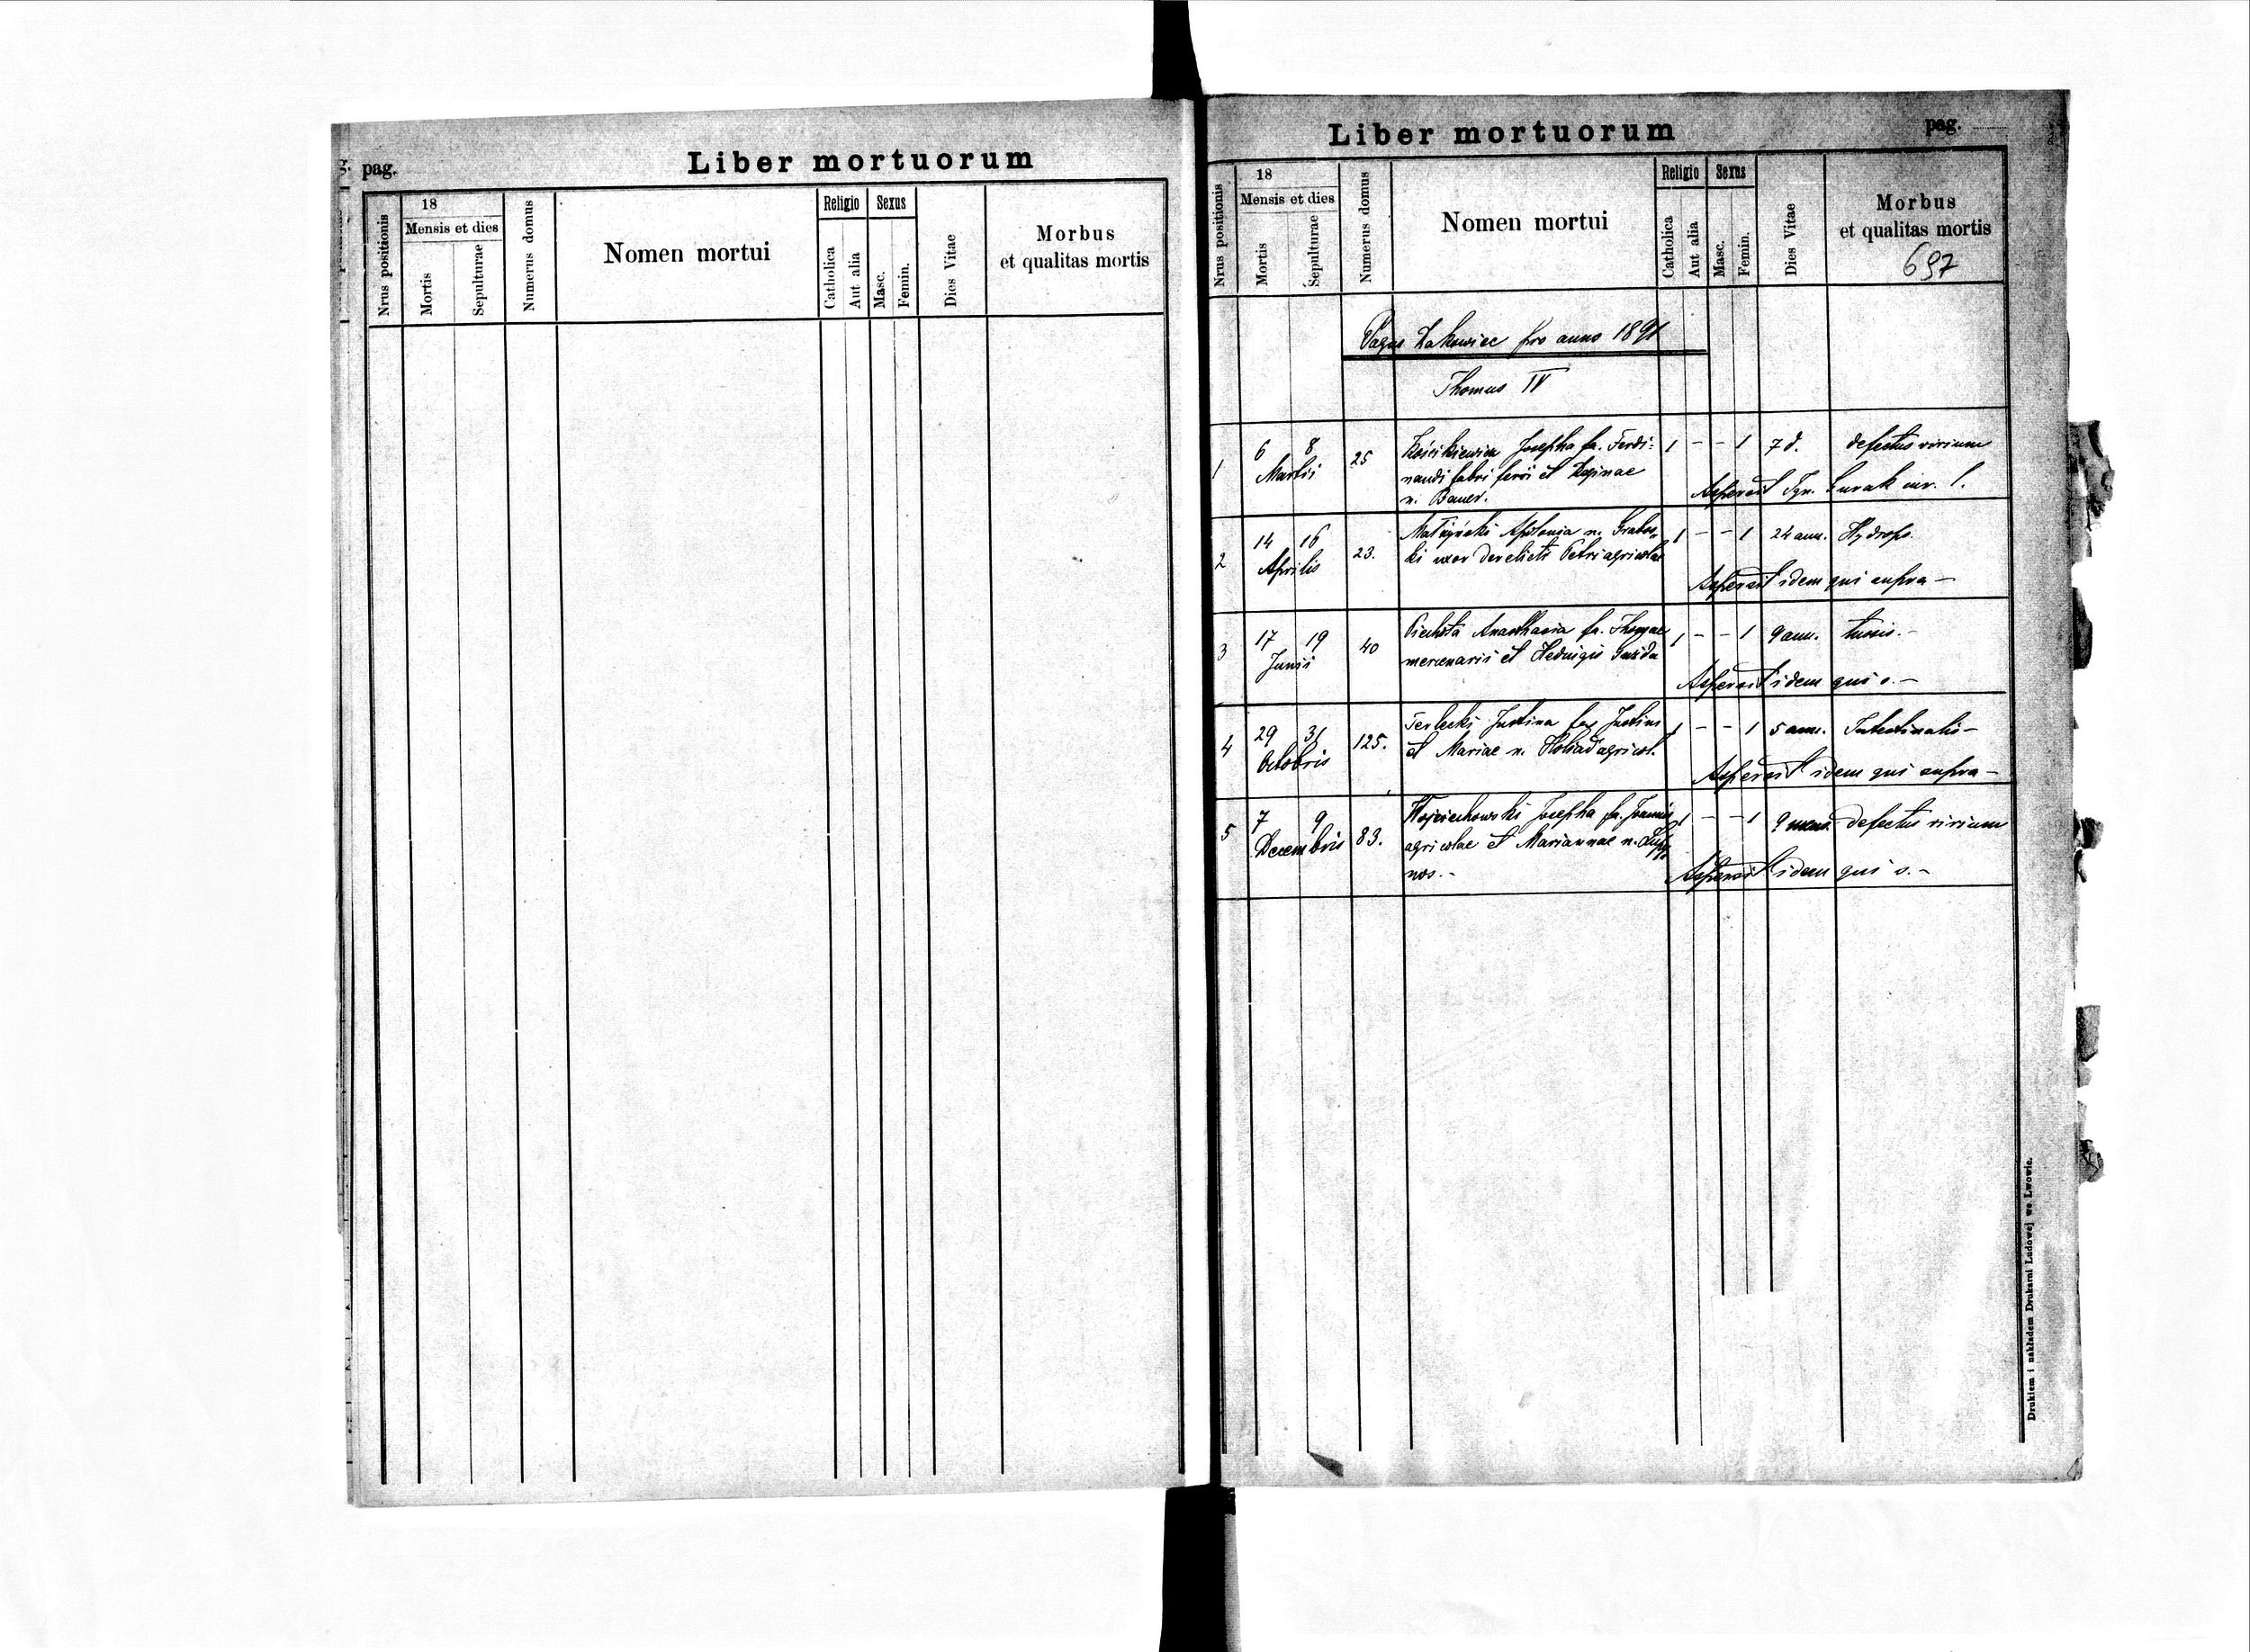 pag.
Liber mortuorum
Nrus positionis
18
Mensis et dies
Mortis
Sepulturae
Numerus domus
Nomen mortui
Religio
Catholica
Aut alia
Sexus
Masc.
Femin.
Dies Vitae
Morbus
et qualitas mortis
Liber mortuorum
pag.
Nrus positionis
18
Mensis et dies
Mortis
Sepulturae
Numerus domus
Nomen mortui
Religio
Catholica
Aut alia
Sexus
Masc.
Femin.
Dies Vitae
Morbus
et qualitas mortis
697
Pagus Zakowiec pro anno 1891
Thomus IV
1 6 8 Martii 25 Josepha fa. Ferdi= 1 - - 1 7 d. defectus virium
nandi fabri ferri et Reginae
n. Bauer. Aspersit Ign. Kurak cur. l.
2 14 16 Aprilis 23. Apolonia n. Grabow 1 - - 1 24 ann. Hydrops.
ski uxor derelicti Petri agricolae
Aspersit idem qui supra —
3 17 19 Junii 40 Piechota Anasthasia fa. Thomae 1 - - 1 9 ann. tussis. -
mercenarii et Hedvigis
Aspersit idem qui s. —
4 29 31 Octobris 125. Terlecki Justina fa. Justini 1 - - 1 5 ann. Intestinalis —
et Mariae n. agricol.
Aspersit idem qui supra —
5 7 9 Decembris 83. Wojciechowski Josepha fa. Joannis 1 - - 1 9 mens. defectus virium
agricolae et Mariannae n.
nos. - Aspersit idem qui s. -
Drukiem i nakładem Drukarni Ludowej we Lwowie.